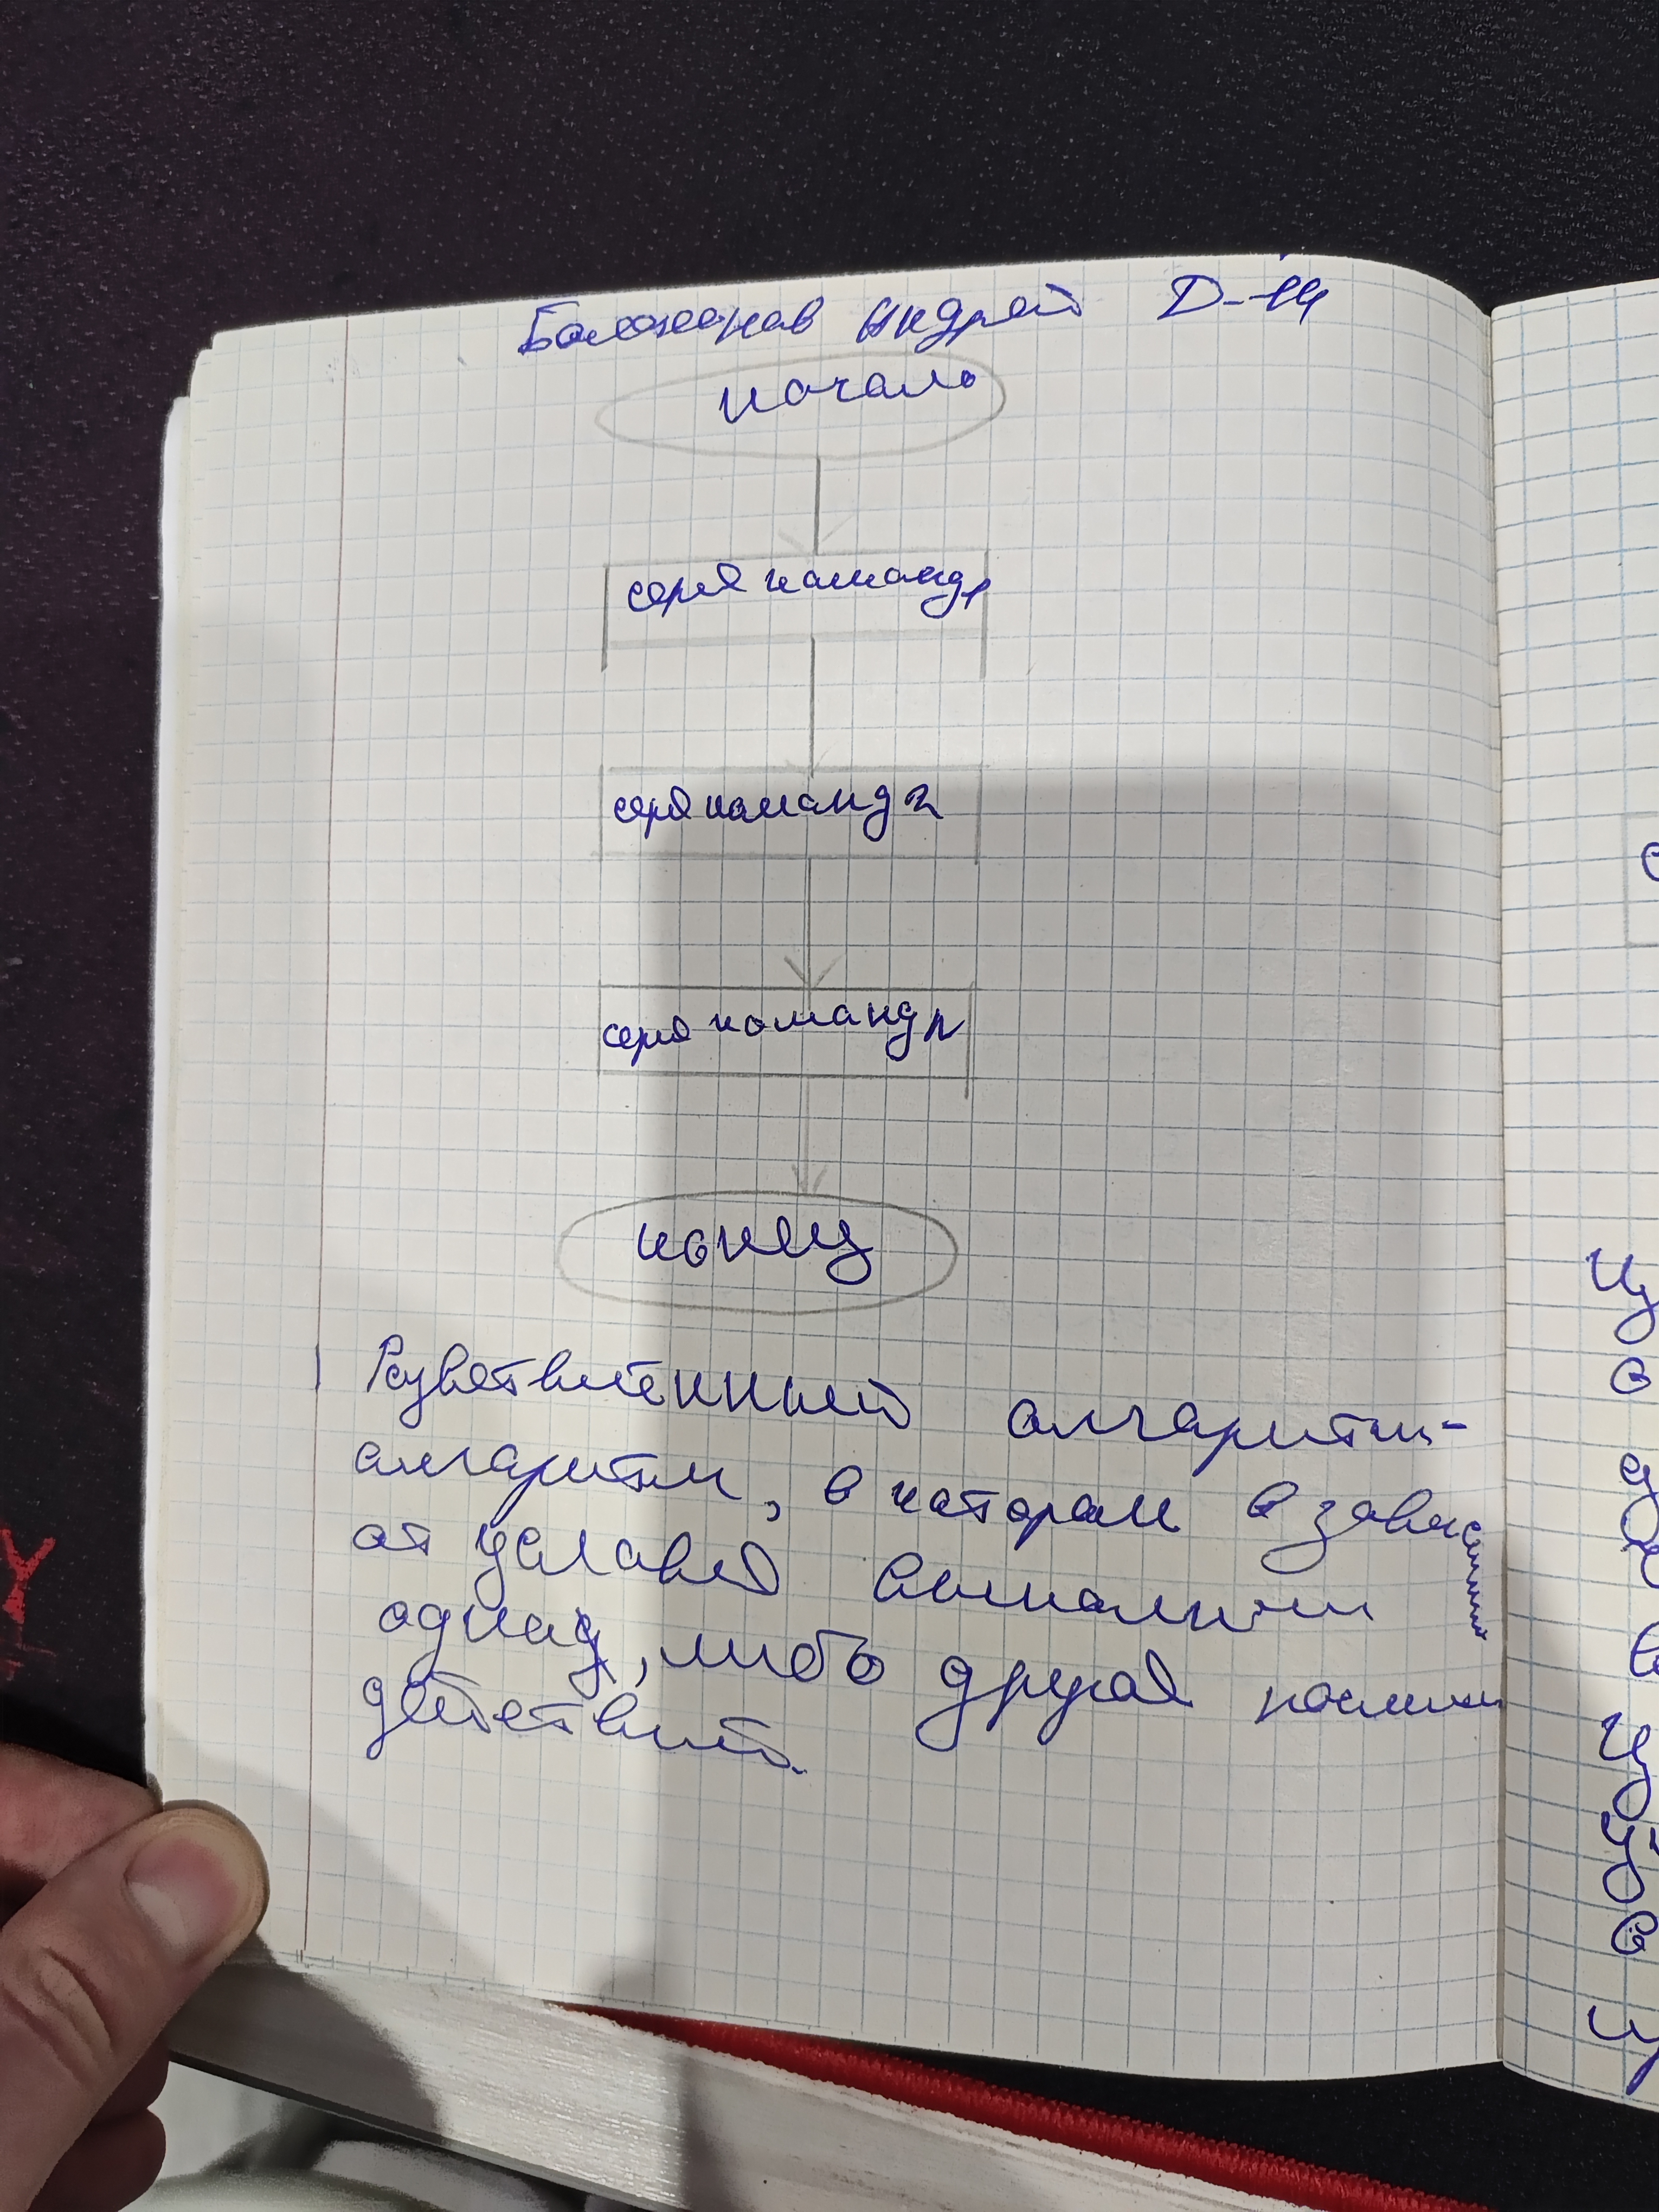 Андрей Д-14
начало
серия команд 1
серия команд 2
серия команд n
конец
Разветвленный алгоритм-
алгоритм, в котором в зависи
от условия
одна, либо другая
действий.